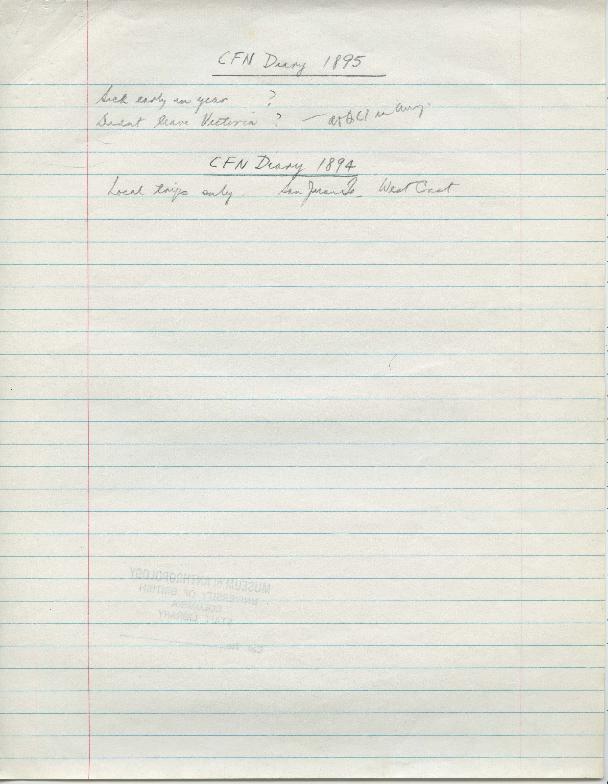 CFN Diary 1895
Sick early in year ?
Didnt leave Victoria ? — in Aug.
CFN Diary 1894
Local trips only. San Juan Is. West Coast
MUSEUM OF ANTHROPOLOGY
UNIVERSITY OF BRITISH
COLUMBIA
STAFF LIBRARY